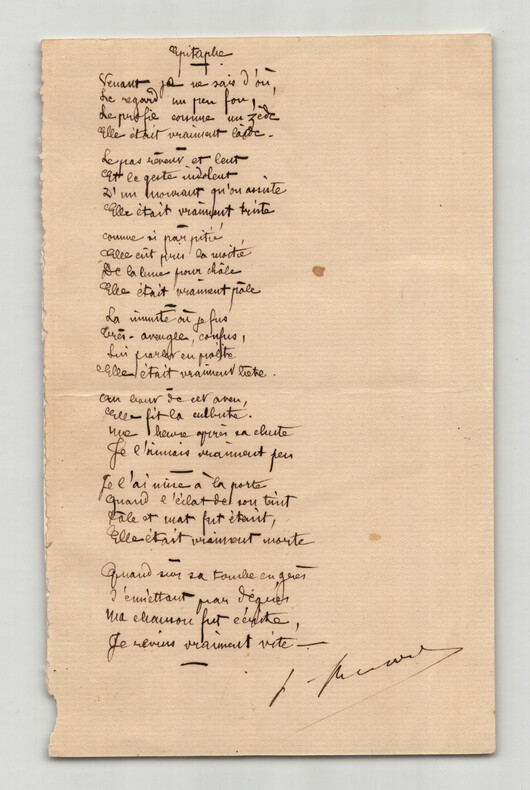 Epitaphe
Venant je ne sais d'où,
Le regard un peu fou,
Le profil comme un zède
Elle était vraiment laide.
Le pas rêveur et lent
Et le geste indolent
D'un mourant qu'on assiste
Elle était vraiment triste
comme si par pitié
Elle eût pris la moitié
De la lune pour châle
Elle était vraiment pâle
La minute où je fus
Très-aveugle, confus,
Lui parler en poète
Elle était vraiment bête.
Au bout de cet aveu,
Elle fit la culbute.
Une heure après sa chute
Je l'aimais vraiment peu
Je l'ai mise à la porte
Quand l'éclat de son teint
Pâle et mat fut éteint,
Elle était vraiment morte
Quand sur sa tombe en grès
S'émiettant par degrés
Ma chanson fut écrite,
Je revins vraiment vite
J. Renard